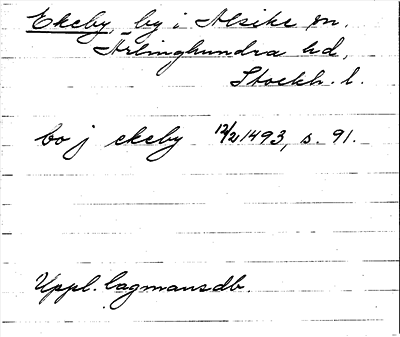 Ekeby, by i Alsike sn,
Ärlinghundra hd,
Stockh. l.
bo j ekeby 12/2 1493, s. 91.
Uppl. lagmansdb.